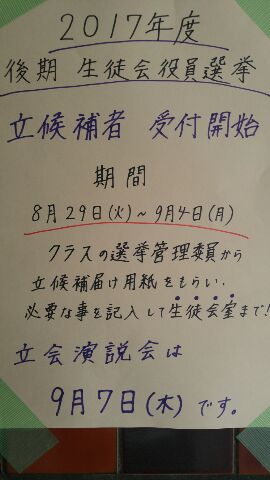 2017年度
後期 生徒会役員選挙
立候補者 受付開始
期間
8月29日(火)~9月4日(月)
クラスの選挙管理委員から
立候補届け用紙をもらい、
必要な事を記入して生徒会室まで!
立会演説会は
9月7日(木)です。